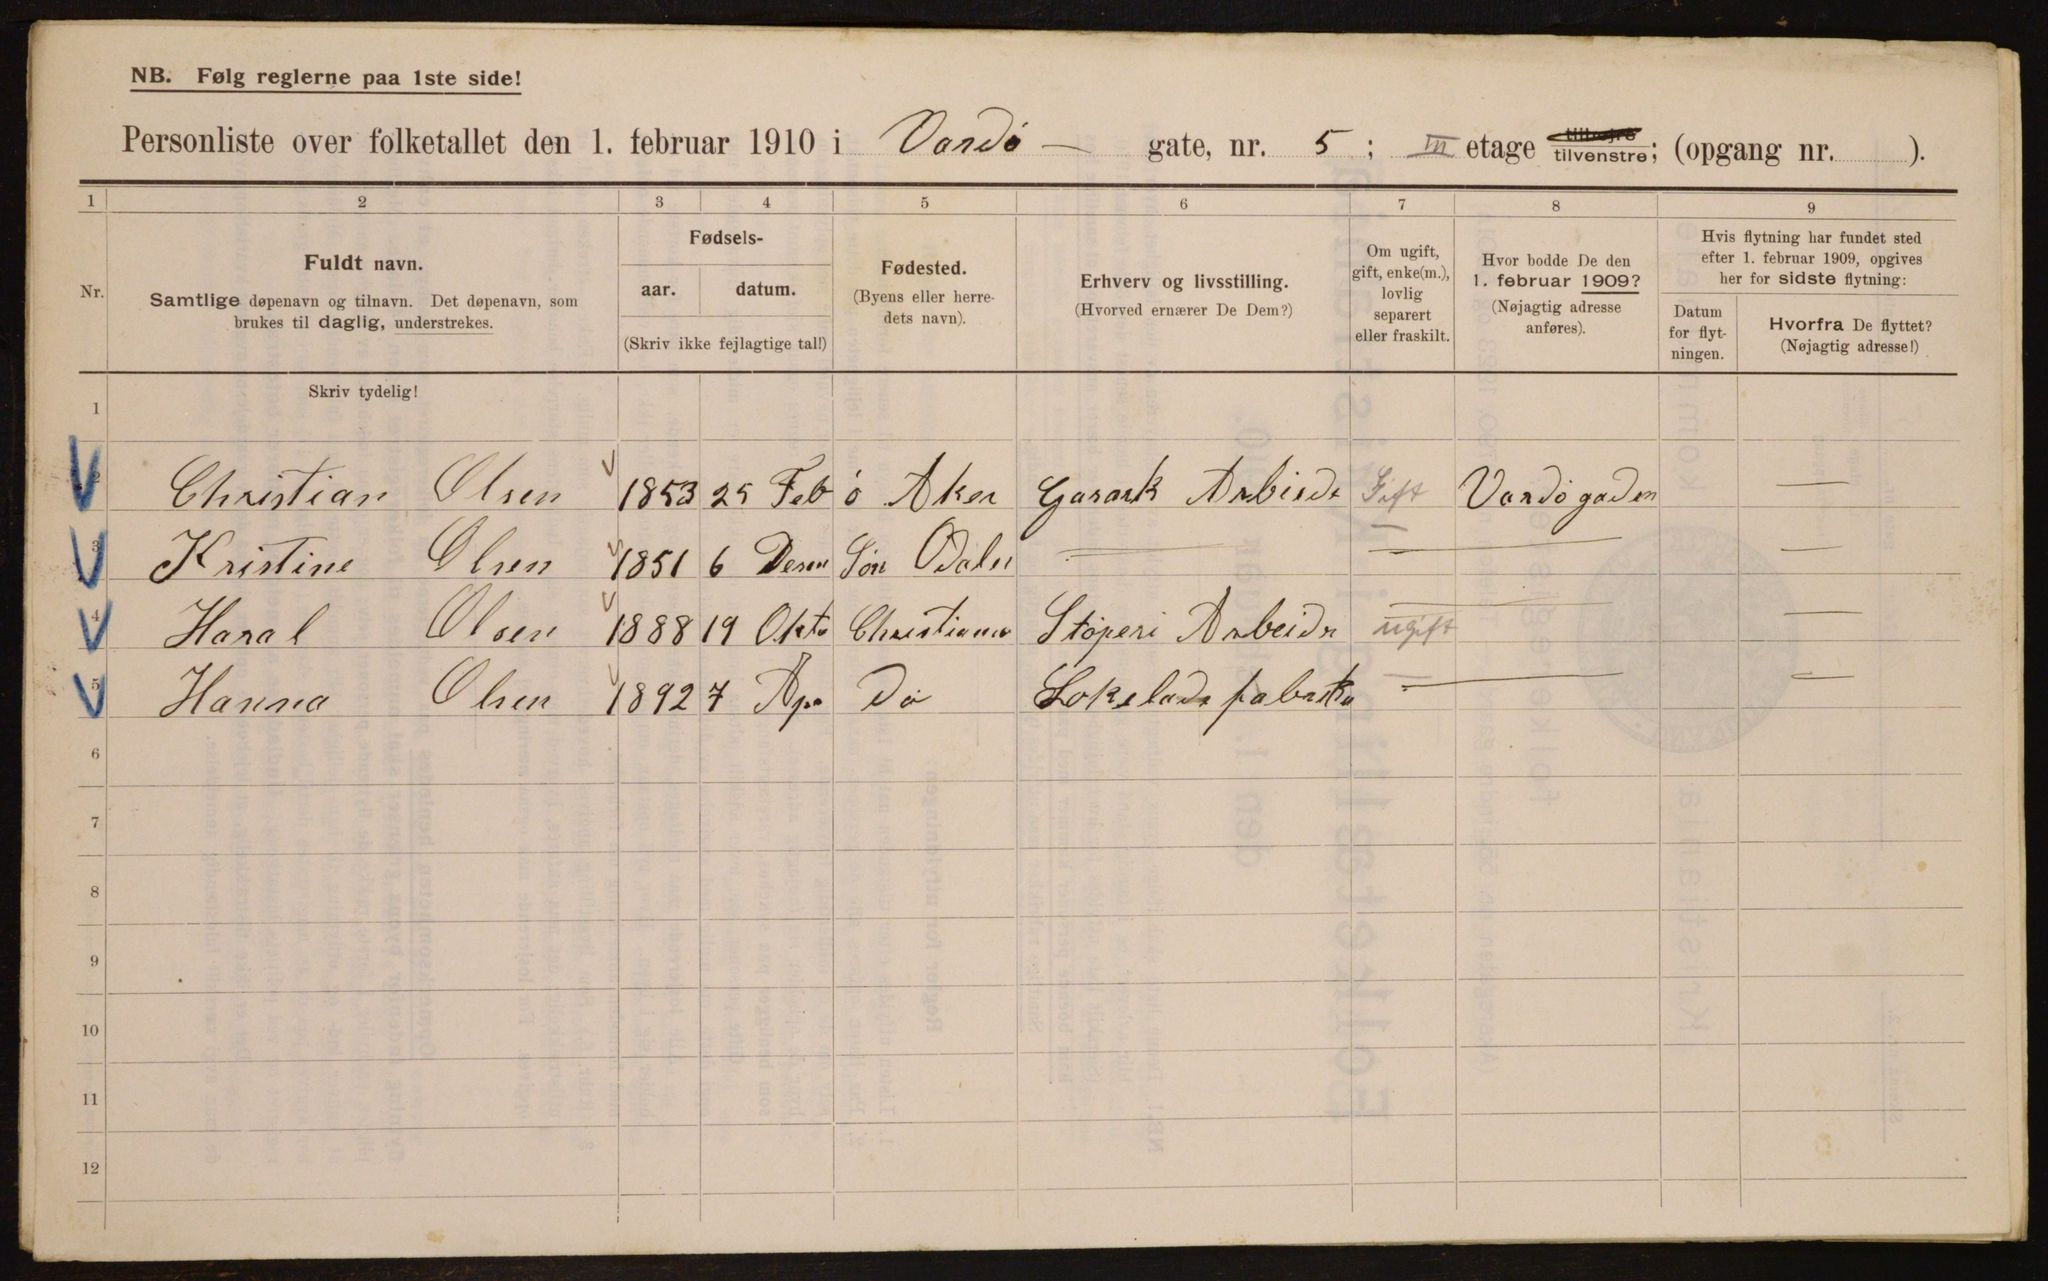 NB. Følg reglerne paa 1ste side!
Personliste over folketallet den 1. februar 1910 i Vardø — gate, nr. 5; III etage tilhøjre tilvenstre; (opgang nr. ).
1 2 3 4 5 6 7 8 9
Nr.
Fuldt navn.
Samtlige døpenavn og tilnavn. Det døpenavn, som
brukes til daglig, understrekes.
Fødsels-
aar. datum.
(Skriv ikke fejlagtige tal!)
Fødested.
(Byens eller herre-
dets navn).
Erhverv og livsstilling.
(Hvorved ernærer De Dem?)
Om ugift,
gift, enke(m.),
lovlig
separert
eller fraskilt.
Hvor bodde De den
1. februar 1909?
(Nøjagtig adresse
anføres).
Hvis flytning har fundet sted
efter 1. februar 1909, opgives
her for sidste flytning:
Datum
for flyt-
ningen.
Hvorfra De flyttet?
(Nøjagtig adresse!)
Skriv tydelig!
1
2 Christian Olsen 1853 25 Feb ø Aker Gasvrk Arbieder Gift Vardøgaden —
3 Kristine Olsen 1851 6 Søn Odalen — — —
4 Haral Olsen 1888 19 Okto Christiania Støperi Arbeider ugift — —
5 Hanna Olsen 1892 7 Apr Do fabrikk — —
6
7
8
9
10
11
12